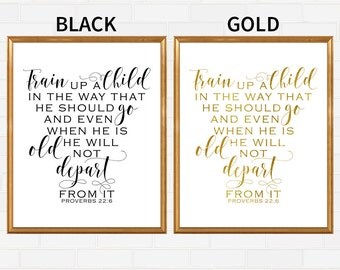 BLACK
Train UP A Child
IN THE WAY THAT
HE SHOULD go
AND EVEN
WHEN HE IS
old HE WILL
NOT
depart
FROM IT
PROVERBS 22:6
GOLD
Train UP A Child
IN THE WAY THAT
HE SHOULD go
AND EVEN
WHEN HE IS
old HE WILL
NOT
depart
FROM IT
PROVERBS 22:6